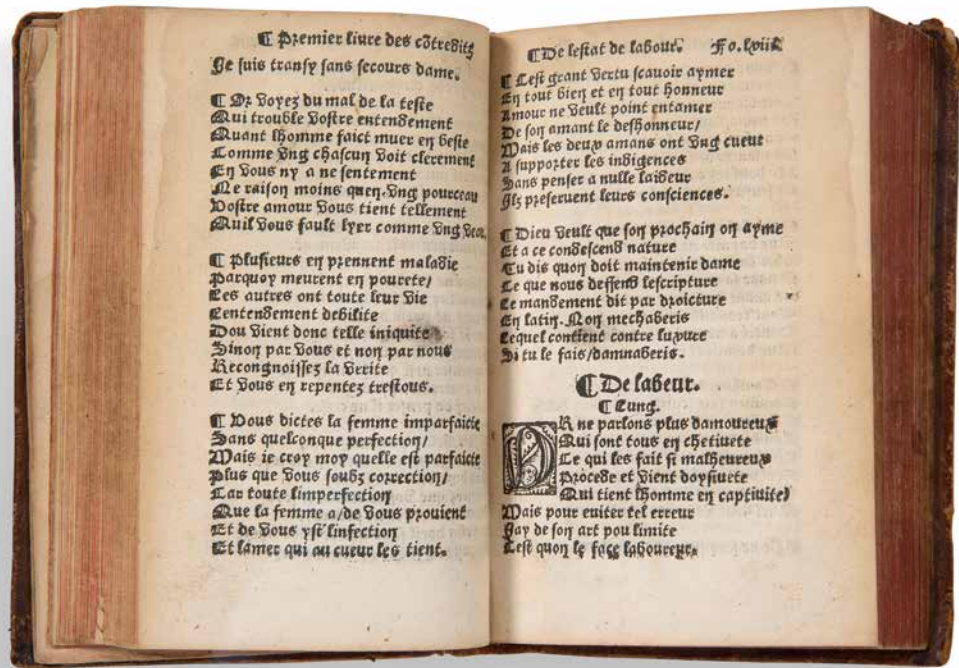 ¶ Premier liure des cõtreditz
Je suis transy sans secours dame.
¶ Or voyez du mal de la teste
Qui trouble vostre entendement
Quant lhomme faict muer en beste
Comme vng chascun voit clerement
En vous ny a ne sentement
Ne raison moins quen vng pourceau
Vostre amour vous tient tellement
Quil vous fault lyer comme vng veau.
¶ Plusieurs en prennent maladie
Parquoy meurent en pourete/
Les autres ont toute leur vie
Lentendement debilite
Dou vient donc telle iniquite
Sinon par vous et non par nous
Recongnoissez la verite
Et vous en repentez trestous.
¶ Vous dictes la femme imparfaicte
Sans quelconque perfection/
Mais ie croy moy quelle est parfaicte
Plus que vous soubz correction/
Car toute limperfection
Que la femme a/de vous prouient
Et de vous yst linfection
Et lamer qui au cueur les tient.
¶ De lestat de labour. Fo.
¶ Cest grant vertu scauoir aymer
En tout bien et en tout honneur
Amour ne veult point entamer
De son amant le deshonneur/
Mais les deux amans ont vng cueur
A supporter les indigences
Sans penser a nulle laideur
Ilz preseruent leurs consciences.
¶ Dieu veult que son prochain on ayme
Et a ce condescend nature
Tu dis quon doit maintenir dame
Ce que nous deffend lescripture
Ce mandement dit par droicture
En latin. Non mechaberis
Lequel contient contre luxure
Si tu le fais/damnaberis.
¶ De labeur.
¶ Lung.
OR ne parlons plus damoureux
Qui sont tous en chetiuete
Ce qui les fait si malheureux
Procede et vient doysiuete
Qui tient lhomme en captiuite/
Mais pour euiter tel erreur
Jay de son art pou limite
Cest quon le face laboureur.